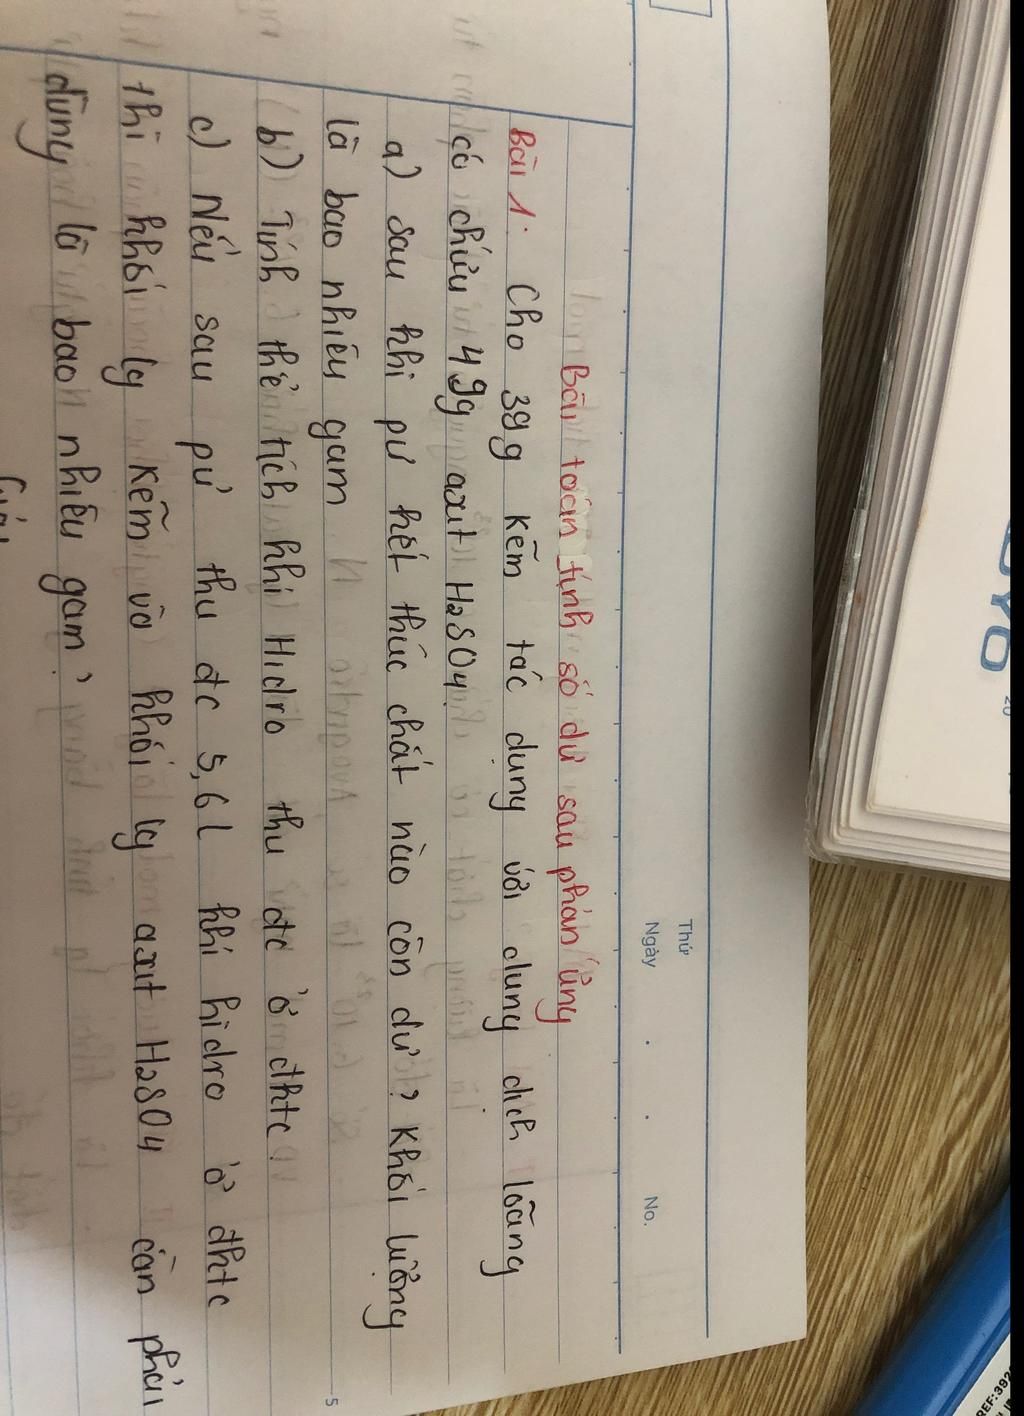 Thứ
Ngày . . No.
Bài toán tính số dư sau phản ứng
Bài 1. Cho 39g kẽm tác dụng với dung dịch loãng
có chứa 49g axit H2SO4
a) Sau khi pư kết thúc chất nào còn dư? Khối lượng
là bao nhiêu gam
b) Tính thể tích khí Hidro thu đc ở đktc
c) Nếu sau pư thu đc 5,6l khí hidro ở đktc
thì khối lg kẽm và khối lg axit H2SO4 cần phải
dùng là bao nhiêu gam?
5
REF:392